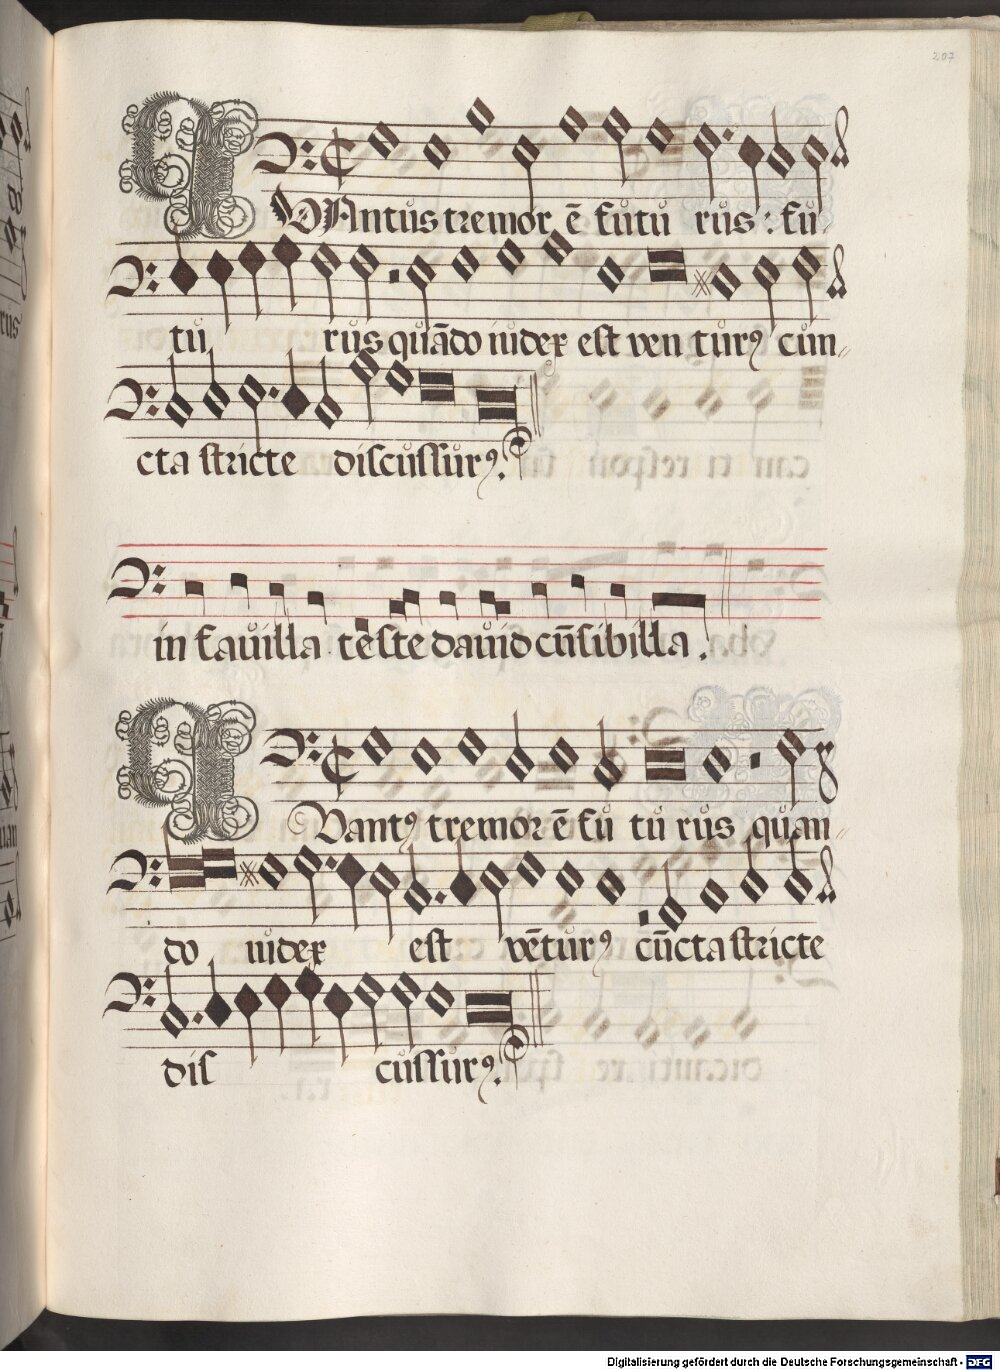 207
QVAntus tremor ē futu rus : fu
tu rus quādo iudex est ven turꝰ cun〃
cta stricte discussurꝰ.
in fauilla teste dauid cūsibilla .
QVantꝰ tremor ē fu tu rus quan〃
do iudex est vēturꝰ cūcta stricte
dis cussurꝰ.
Digitalisierung gefördert durch die Deutsche Forschungsgemeinschaft - DFG